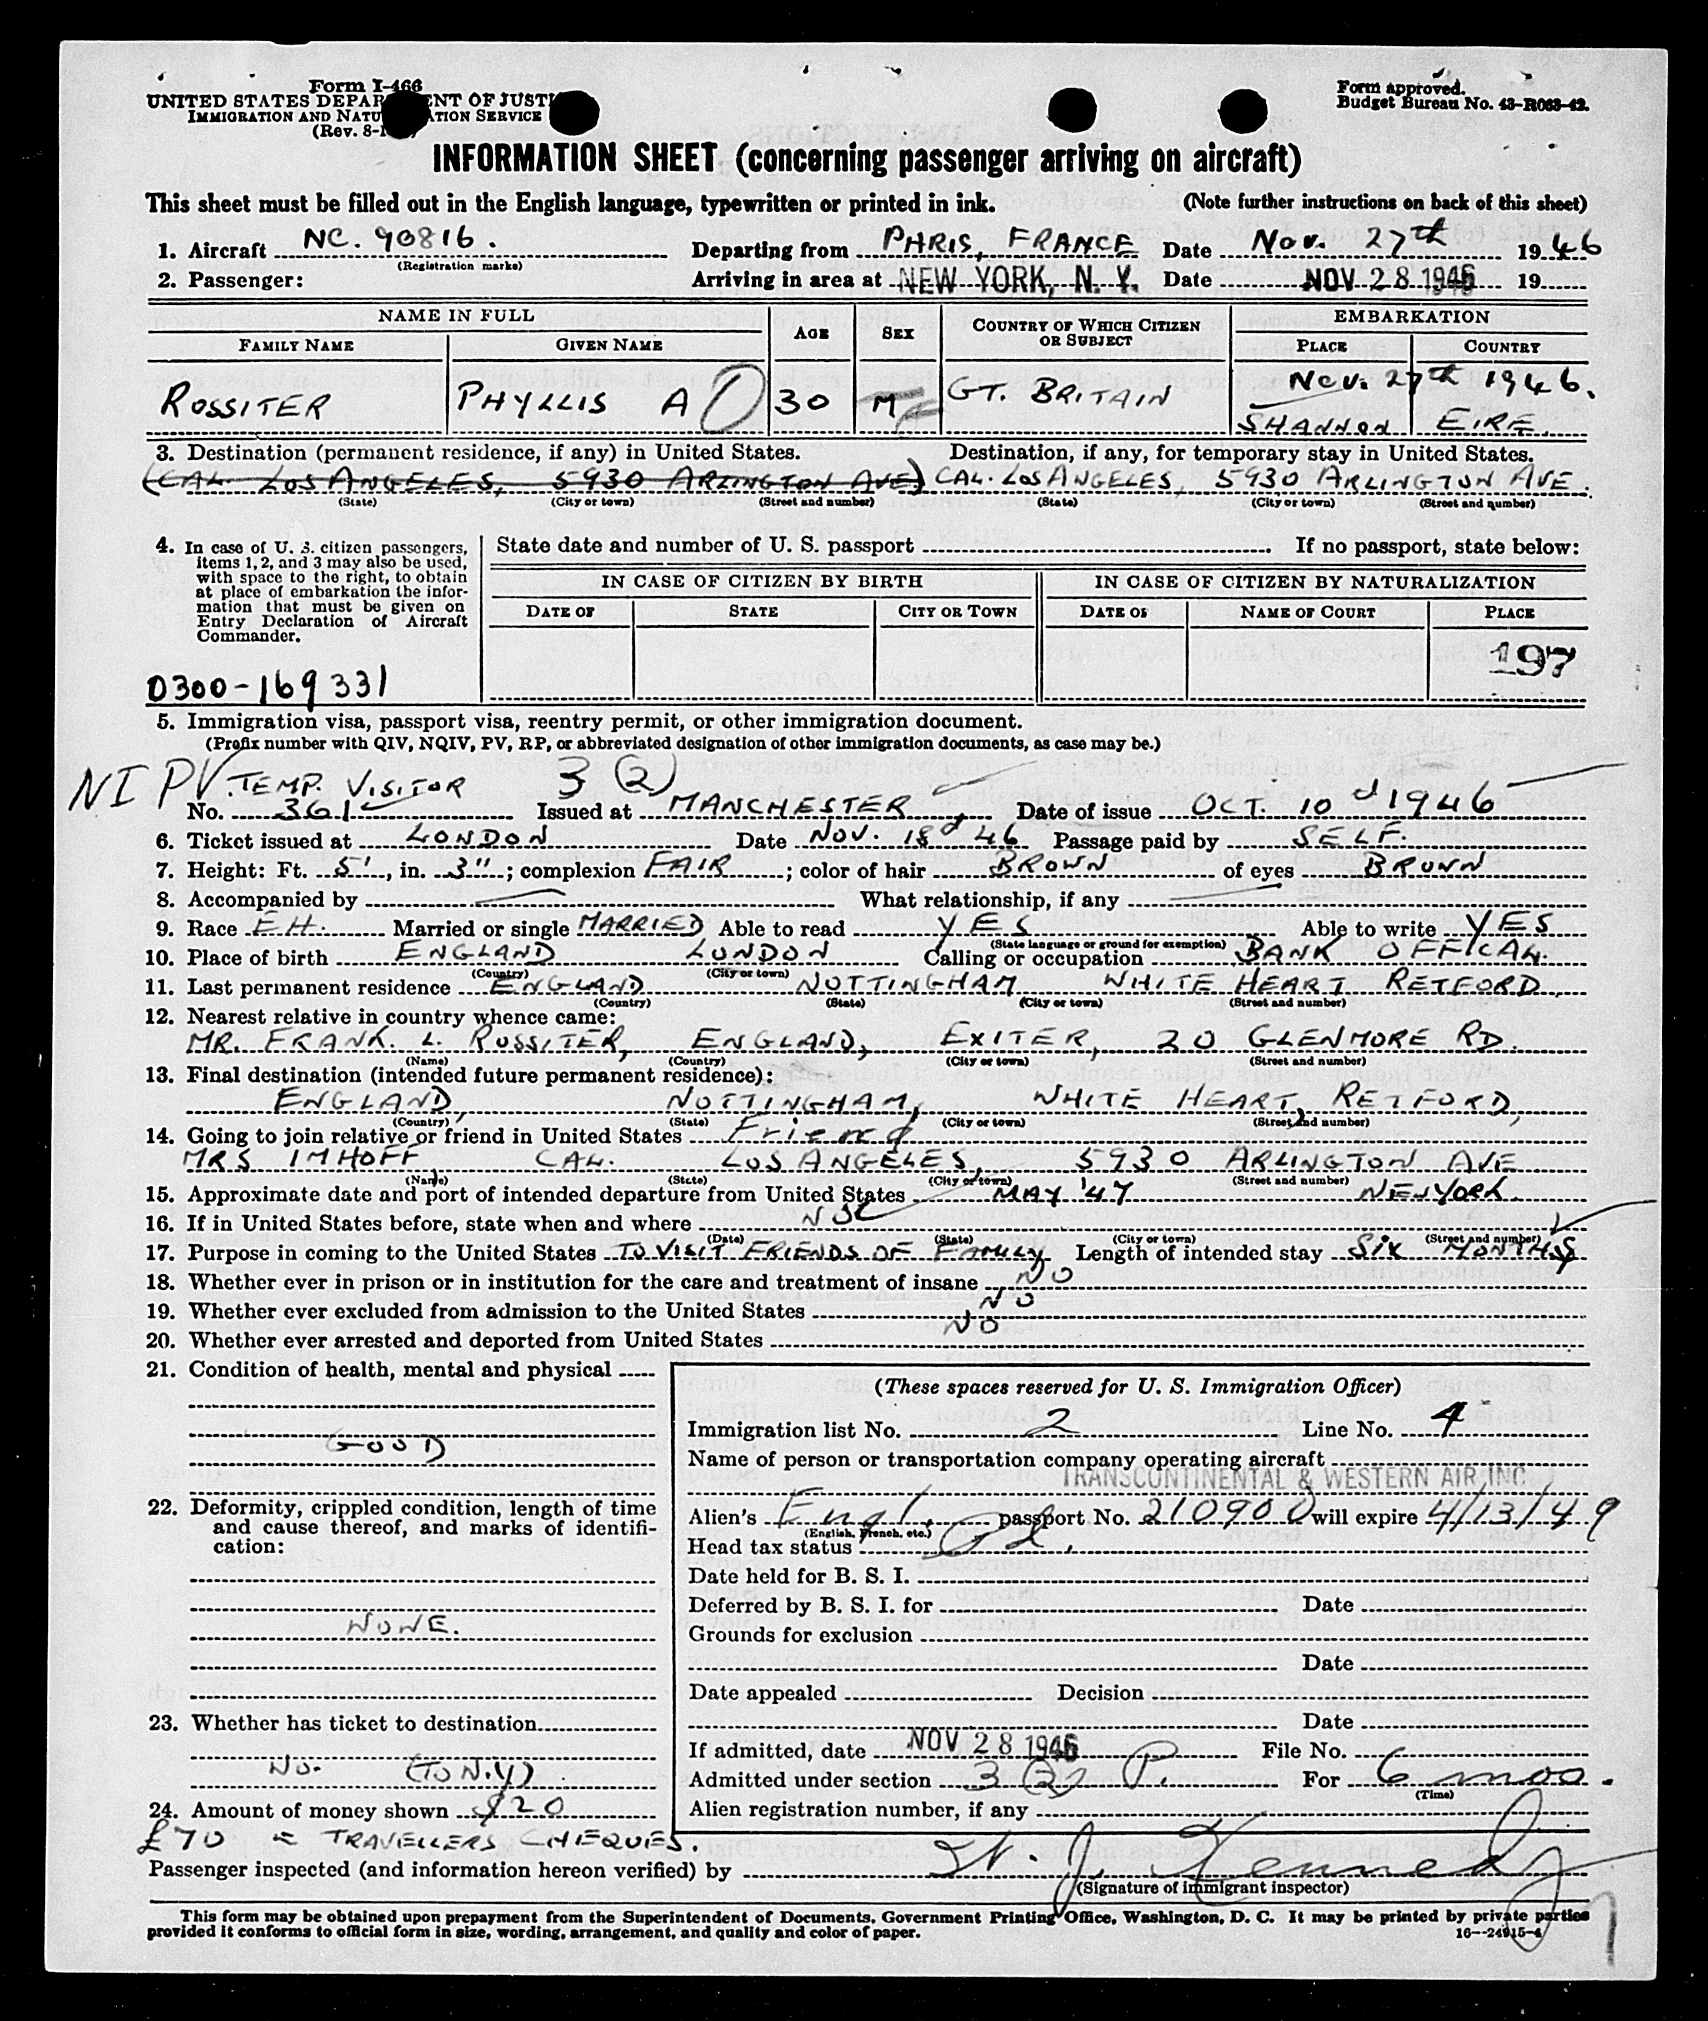 Form I-466
UNITED STATES DEPARTMENT OF JUSTICE
IMMIGRATION AND NATURALIZATION SERVICE
(Rev. 8-1
Form approved.
Budget Bureau No. 43-R063-42.
INFORMATION SHEET (concerning passenger arriving on aircraft)
This sheet must be filled out in the English language, typewritten or printed in ink. (Note further instructions on back of this sheet)
1. Aircraft NC. 90816. Departing from PARIS, FRANCE Date Nov. 27th 1946
(Registration marks)
2. Passenger: Arriving in area at NEW YORK, N. Y. Date NOV 28 1946 19
NAME IN FULL AGE SEX COUNTRY OF WHICH CITIZEN OR SUBJECT EMBARKATION
FAMILY NAME GIVEN NAME PLACE COUNTRY
Nov. 27th 1946.
ROSSITER PHYLLIS A 30 M F GT. BRITAIN SHANNON EIRE.
3. Destination (permanent residence, if any) in United States. Destination, if any, for temporary stay in United States.
(CAL. LOS ANGELES, 5930 ARLINGTON AVE) CAL. LOS ANGELES, 5930 ARLINGTON AVE.
(State) (City or town) (Street and number) (State) (City or town) (Street and number)
4. In case of U. S. citizen passengers, items 1, 2, and 3 may also be used, with space to the right, to obtain at place of embarkation the information that must be given on Entry Declaration of Aircraft Commander.
State date and number of U. S. passport . If no passport, state below:
IN CASE OF CITIZEN BY BIRTH IN CASE OF CITIZEN BY NATURALIZATION
DATE OF STATE CITY OR TOWN DATE OF NAME OF COURT PLACE
197
0300-169331
5. Immigration visa, passport visa, reentry permit, or other immigration document.
(Prefix number with QIV, NQIV, PV, RP, or abbreviated designation of other immigration documents, as case may be.)
NI PV TEMP. VISITOR 3 (2)
No. 361 Issued at MANCHESTER, Date of issue OCT. 10 d 1946
6. Ticket issued at LONDON Date NOV. 18 d 46 Passage paid by SELF.
7. Height: Ft. 5', in. 3"; complexion FAIR; color of hair BROWN of eyes BROWN
8. Accompanied by What relationship, if any
9. Race EH. Married or single MARRIED Able to read YES Able to write YES
(State language or ground for exemption)
10. Place of birth ENGLAND LONDON Calling or occupation BANK OFFICAL.
(Country) (City or town)
11. Last permanent residence ENGLAND NOTTINGHAM WHITE HEART RETFORD,
(Country) (State) (City or town) (Street and number)
12. Nearest relative in country whence came:
MR. FRANK. L. ROSSITER, ENGLAND, EXITER, 20 GLENMORE RD.
(Name) (Country) (City or town) (Street and number)
13. Final destination (intended future permanent residence):
ENGLAND, NOTTINGHAM, WHITE HEART, RETFORD,
(Country) (State) (City or town) (Street and number)
14. Going to join relative or friend in United States Friend
MRS IMHOFF CAL. LOS ANGELES, 5930 ARLINGTON AVE
(Name) (State) (City or town) (Street and number)
15. Approximate date and port of intended departure from United States MAY '47 NEW YORK.
16. If in United States before, state when and where
(Date) (State) (City or town) (Street and number)
17. Purpose in coming to the United States TO VISIT FRIENDS OF FAMILY Length of intended stay SIX MONTHS
18. Whether ever in prison or in institution for the care and treatment of insane NO
19. Whether ever excluded from admission to the United States NO
20. Whether ever arrested and deported from United States NO
21. Condition of health, mental and physical
GOOD
22. Deformity, crippled condition, length of time and cause thereof, and marks of identification:
NONE.
23. Whether has ticket to destination
No. (TO N.Y)
24. Amount of money shown $20
£70 = TRAVELLERS CHEQUES.
(These spaces reserved for U. S. Immigration Officer)
Immigration list No. 2 Line No. 4
Name of person or transportation company operating aircraft
TRANSCONTINENTAL & WESTERN AIR, INC.
Alien's Engl. passport No. 210900 will expire 4/13/49
(English, French, etc.)
Head tax status Pd.
Date held for B. S. I.
Deferred by B. S. I. for Date
Grounds for exclusion
Date
Date appealed Decision
Date
If admitted, date NOV 28 1946 File No.
Admitted under section 3 (2) P. For 6 mos.
(Time)
Alien registration number, if any
Passenger inspected (and information hereon verified) by J. Kennedy
(Signature of immigrant inspector)
This form may be obtained upon prepayment from the Superintendent of Documents, Government Printing Office, Washington, D. C. It may be printed by private parties
provided it conforms to official form in size, wording, arrangement, and quality and color of paper. 16—24915-4